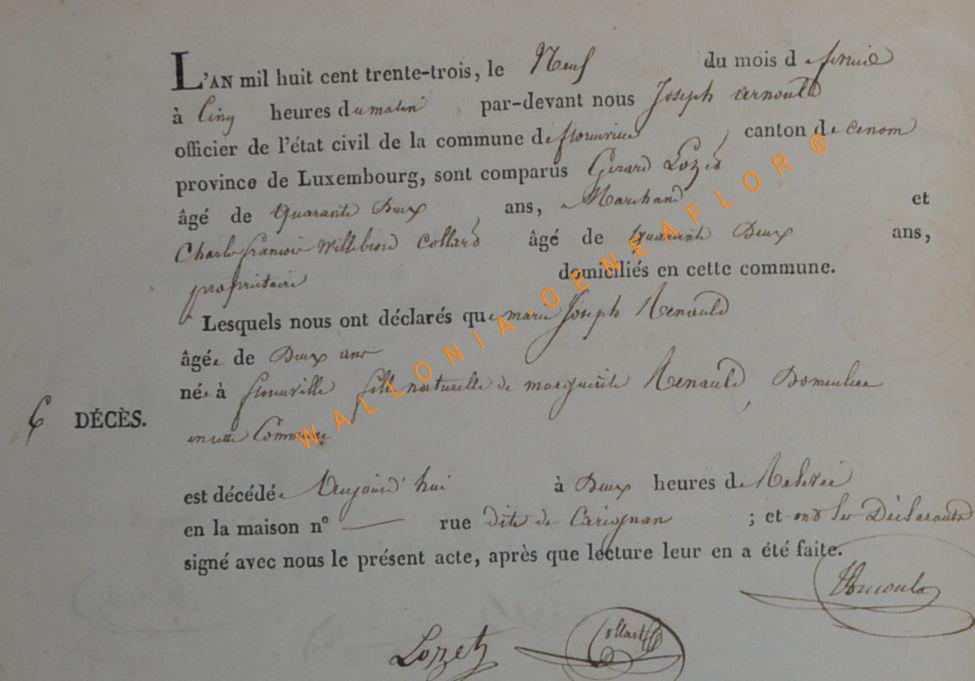 L'AN mil huit cent trente-trois, le Neuf du mois de fevrié
à Cinq heures du matin par-devant nous Joseph Arnould
officier de l'état civil de la commune de florenville canton de
province de Luxembourg, sont comparus Gérard Lozet
âgé de Quarante Deux ans, Marchand et
Charles françois Willebrord Collard âgé de quarante Deux ans,
propriétaire domiciliés en cette commune.
Lesquels nous ont déclarés que marie Joseph Renauld
âgée de Deux ans
née à florenville fille naturelle de marguerite Renauld Domiciliée
6 DÉCÈS.
en cette Commune
est décédée Aujourd'hui à Deux heures de Relevée
en la maison n° — rue dite de Carignan ; et ont les Déclarants
signé avec nous le présent acte, après que lecture leur en a été faite.
Arnould
Lozet Collard
WALLONIA-GENEAFLOR ®